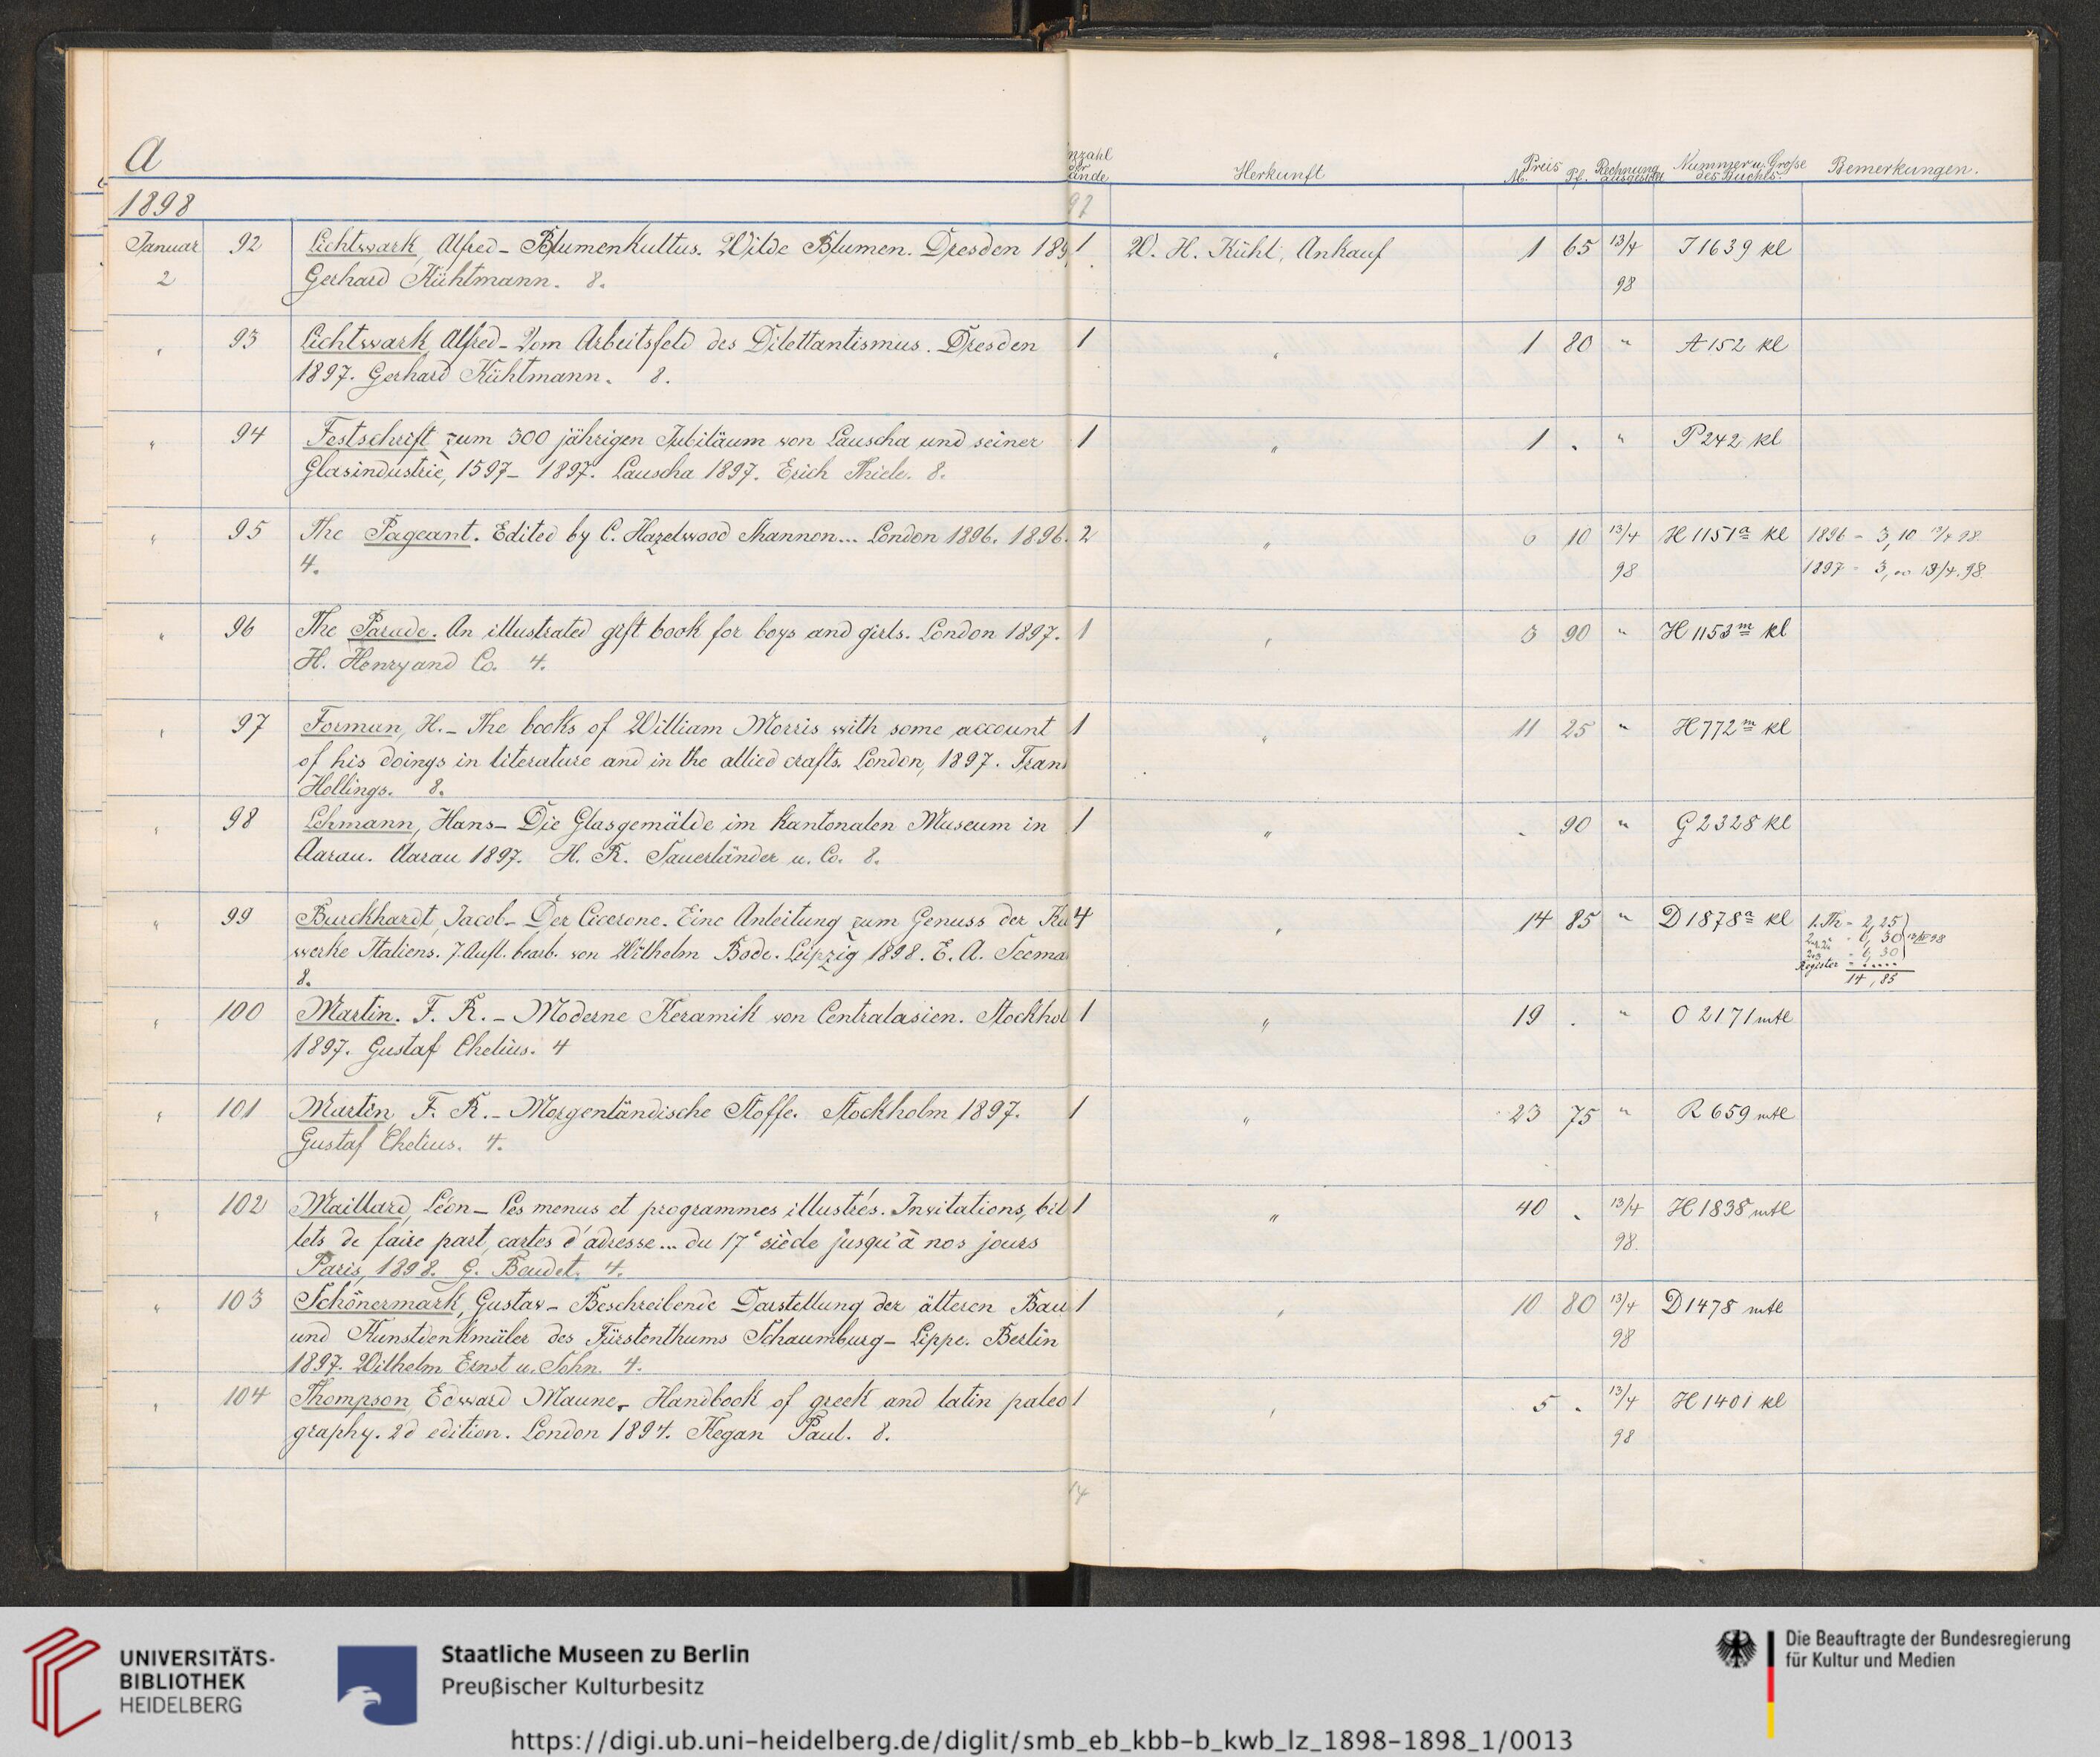 A
nzahl der ände Herkunft Preis M. Pf. Rechnung ausgestellt Nummer u. Grösse des Buchs. Bemerkungen.
1898
Januar 92 Lichtwark, Alfred - Blumenkultus. Wilde Blumen. Dresden 189 1 W. H. Kühl, Ankauf 1 65 13/4 J 1639 kl
2 Gerhard Kühtmann. 8. 98
" 93 Lichtwark, Alfred - Vom Arbeitsfeld des Dilettantismus. Dresden 1 " 1 80 " A 152 kl
1897. Gerhard Kühtmann. 8.
" 94 Festschrift zum 300 jährigen Jubiläum von Lauscha und seiner 1 " 1 . " P 242 kl
Glasindustrie, 1597 - 1897. Lauscha 1897. Erich Thiele. 8.
" 95 The Pageant. Edited by C. Hazelwood Shannon... London 1896. 1896. 2 " 6 10 13/4 H 1151a kl 1896 - 3,10 13/4 98.
4. 98 1897 - 3,00 13/4. 98.
" 96 The Parade. An illustrated gift book for boys and girls. London 1897. 1 " 3 90 " H 1153m kl
H. Henry and Co. 4.
" 97 Forman, H. - The books of William Morris with some account 1 " 11 25 " H 772m kl
of his doings in literature and in the allied crafts. London, 1897. Frank
Hollings. 8.
" 98 Lehmann, Hans - Die Glasgemälde im kantonalen Museum in 1 " . 90 " G 2328 kl
Aarau. Aarau 1897. H. R. Sauerländer u. Co. 8.
" 99 Burckhardt, Jacob - Der Cicerone. Eine Anleitung zum Genuss der Ku 4 " 14 85 " D 1878a kl 1. Th - 2,25
werke Italiens. 7. Aufl. bearb. von Wilhelm Bode. Leipzig 1898. E. A. Seema - 6,30 13/IV 98
8. - 6,30
Register -
14,85
" 100 Martin. F. R. - Moderne Keramik von Centralasien. Stockhol 1 " 19 . " O 2171 mtl
1897. Gustaf Chelius. 4
" 101 Martin F. R. - Morgenländische Stoffe. Stockholm 1897. 1 " 23 75 " R 659 mtl
Gustaf Chelius. 4.
" 102 Maillard, Léon - Les menus et programmes illustrés. Invitations, bil 1 " 40 . 13/4 H 1838 mtl
lets de faire part, cartes d'adresse... du 17e siècle jusqu'à nos jours 98.
Paris, 1898. G. Boudet. 4.
" 103 Schönermark, Gustav - Beschreibende Darstellung der älteren Bau 1 " 10 80 13/4 D 1478 mtl
und Kunstdenkmäler des Fürstenthums Schaumburg - Lippe. Berlin 98
1897. Wilhelm Ernst u. Sohn. 4.
" 104 Thompson Edward Maune, Handbook of greek and latin paleo 1 " 5 . 13/4 H 1401 kl
graphy. 2d edition. London 1894. Kegan Paul. 8. 98
14
UNIVERSITÄTS-
BIBLIOTHEK
HEIDELBERG
Staatliche Museen zu Berlin
Preußischer Kulturbesitz
Die Beauftragte der Bundesregierung
für Kultur und Medien
https://digi.ub.uni-heidelberg.de/diglit/smb_eb_kbb-b_kwb_lz_1898-1898_1/0013